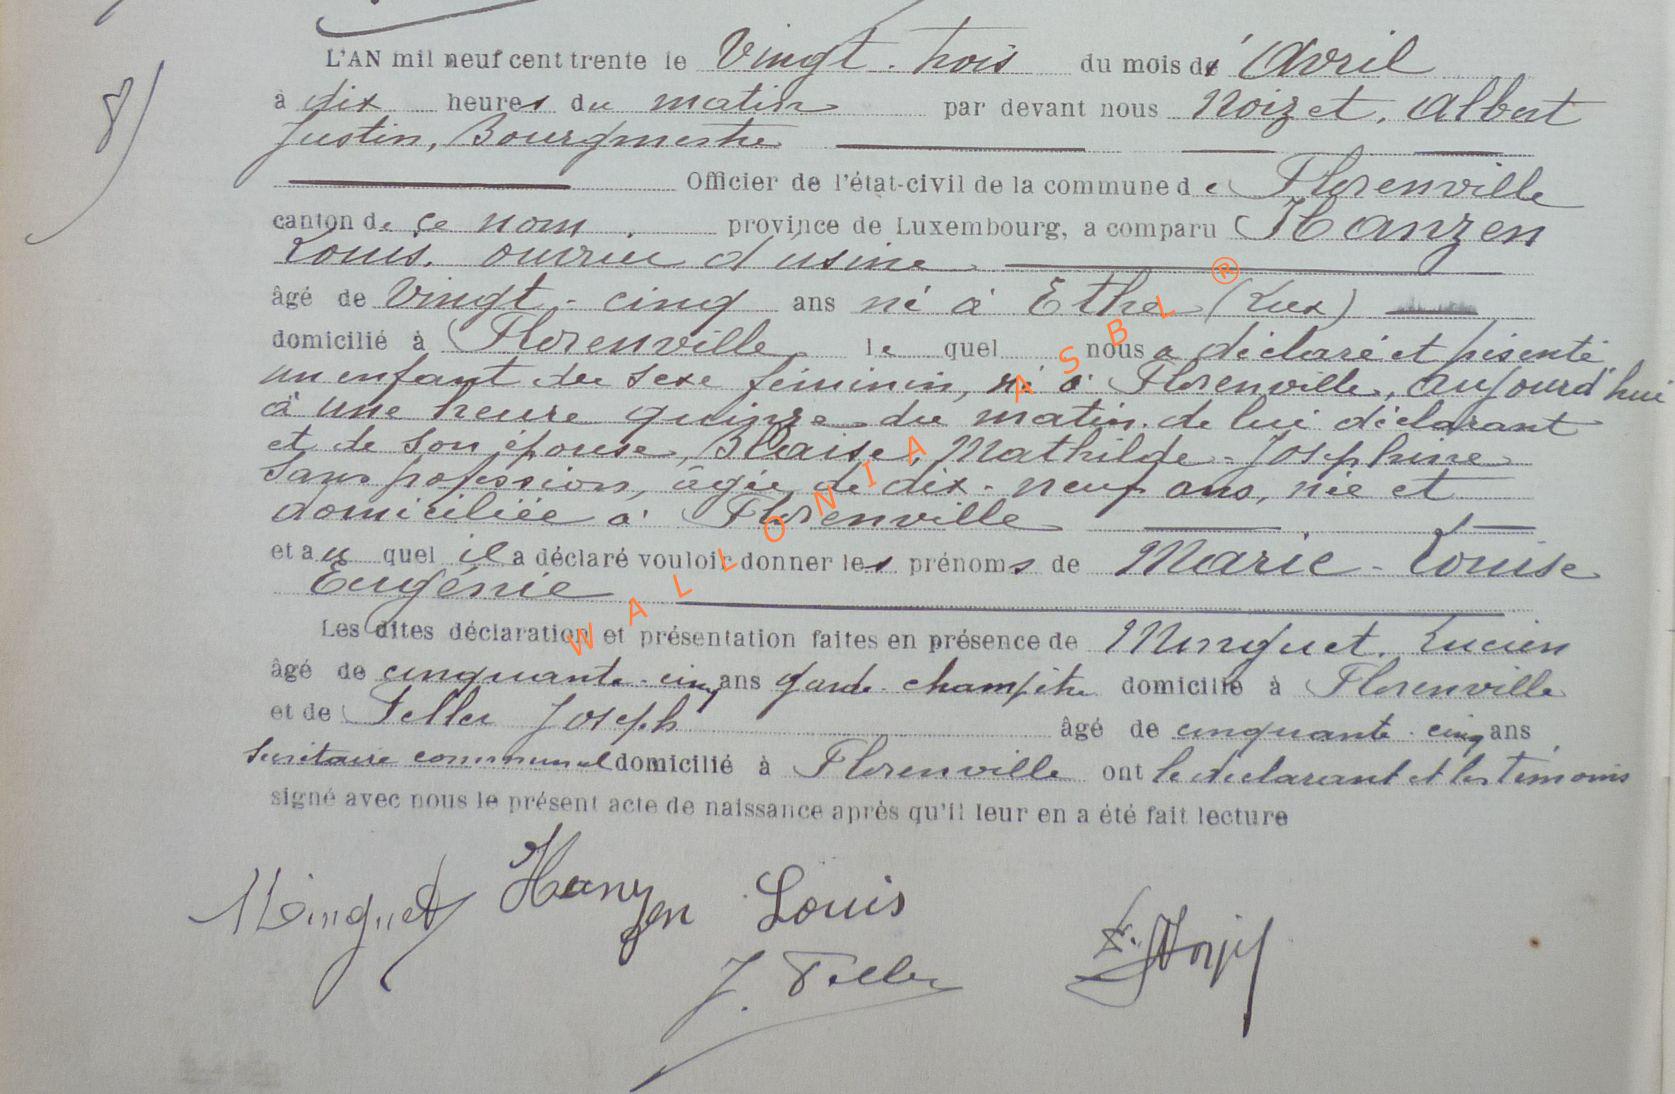 L'AN mil neuf cent trente le Vingt-trois du mois d' Avril
8)
à dix heures du matin par devant nous Noizet, Albert
Justin, Bourgmestre
Officier de l'état-civil de la commune de Florenville
canton de ce nom, province de Luxembourg, a comparu Hanzen
Louis, ouvrier d'usine
âgé de Vingt-cinq ans né à Ethe (Lux)
domicilié à Florenville, le quel nous a déclaré et présenté
un enfant du sexe féminin, né à Florenville, aujourd'hui
à une heure quinze du matin, de lui déclarant
et de son épouse, Blaise, Mathilde-Josephine
sans profession, âgée de dix-neuf ans, née et
domiciliée à Florenville
et au quel il a déclaré vouloir donner les prénoms de Marie-Louise
Eugénie
Les dites déclaration et présentation faites en présence de Minguet, Lucien
âgé de cinquante-cinq ans garde-champêtre domicilié à Florenville
et de Feller Joseph âgé de cinquante-cinq ans
secrétaire communal domicilié à Florenville ont le déclarant et les témoins
signé avec nous le présent acte de naissance après qu'il leur en a été fait lecture
Minguet Hanzen Louis
J. Feller
WALLONIA ASBL ®